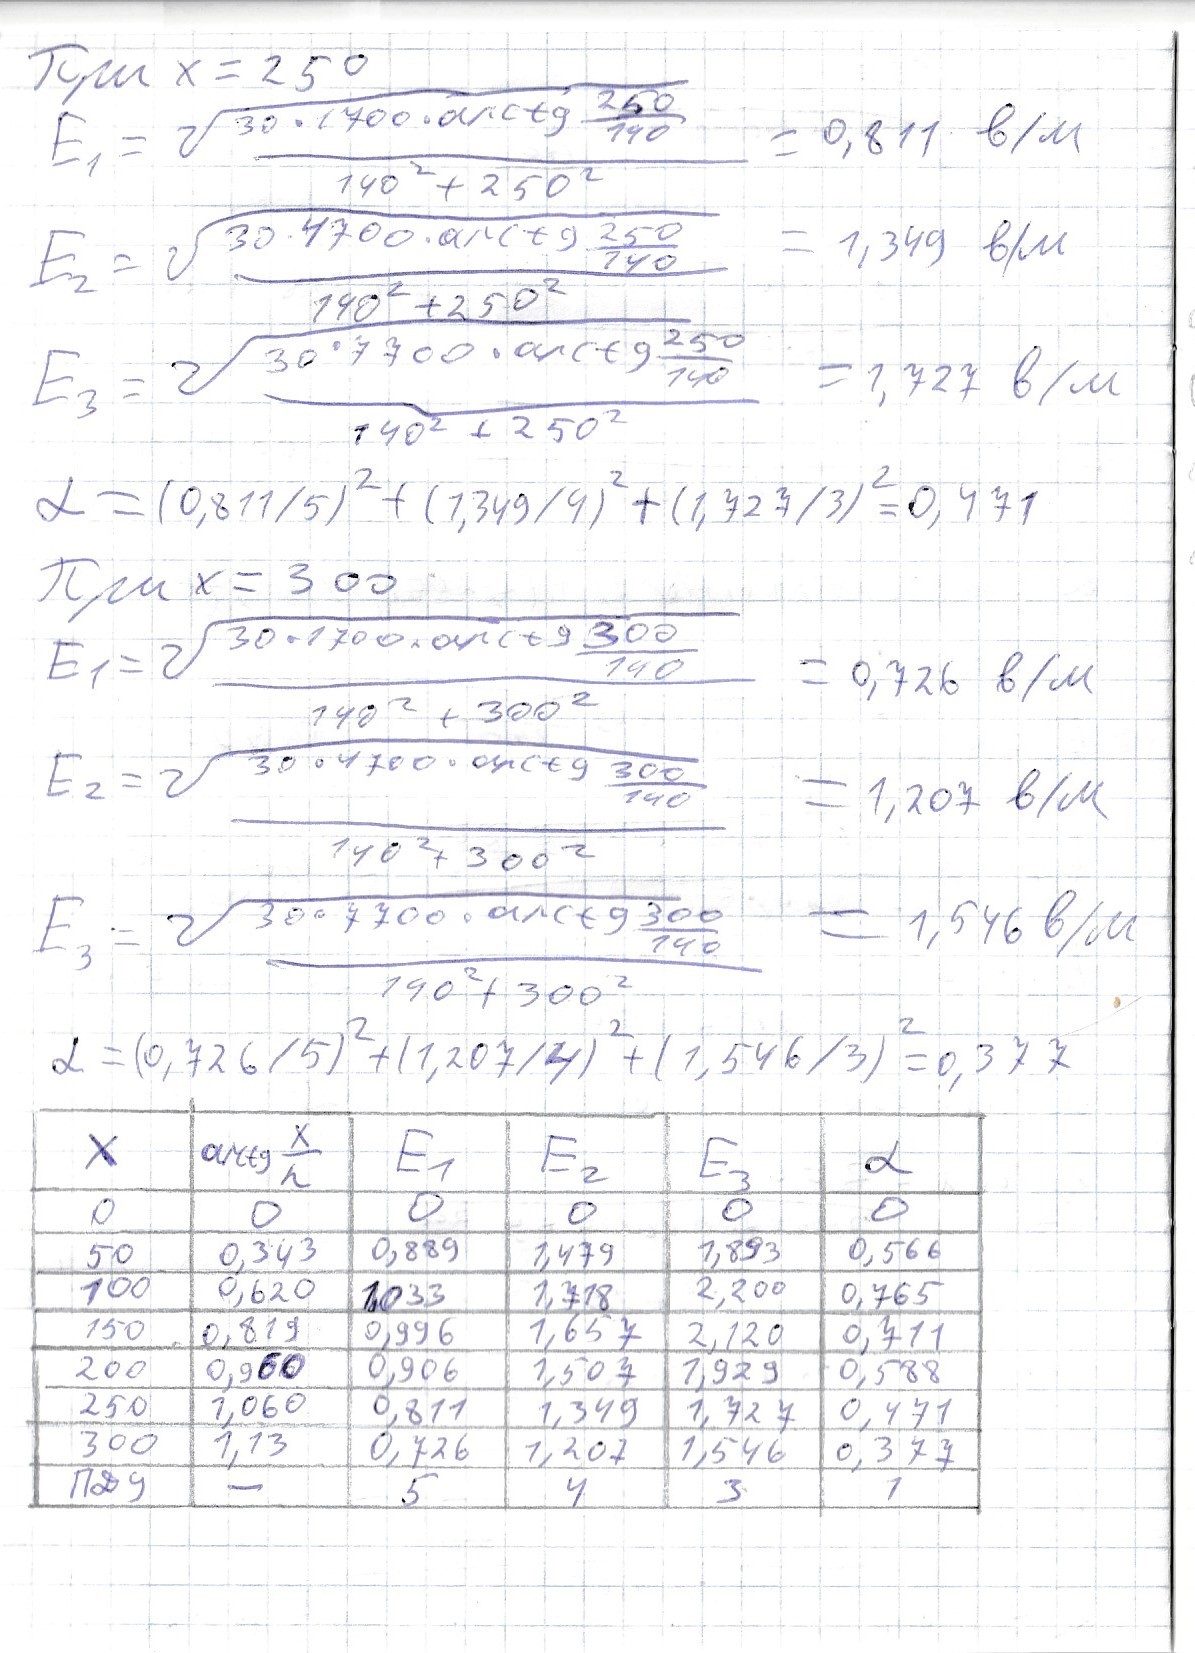 При x = 250
E₁ = √(30·1700·arctg 250/140 / 140² + 250²) = 0,811 в/м
E₂ = √(30·4700·arctg 250/140 / 140² + 250²) = 1,349 в/м
E₃ = √(30·7700·arctg 250/140 / 140² + 250²) = 1,727 в/м
α = (0,811/5)² + (1,349/4)² + (1,727/3)² = 0,471
При x = 300
E₁ = √(30·1700·arctg 300/140 / 140² + 300²) = 0,726 в/м
E₂ = √(30·4700·arctg 300/140 / 140² + 300²) = 1,207 в/м
E₃ = √(30·7700·arctg 300/140 / 140² + 300²) = 1,546 в/м
α = (0,726/5)² + (1,207/4)² + (1,546/3)² = 0,377
X arctg x/h E₁ E₂ E₃ α
0 0 0 0 0 0
50 0,343 0,889 1,479 1,893 0,566
100 0,620 1,033 1,718 2,200 0,765
150 0,819 0,996 1,657 2,120 0,711
200 0,960 0,906 1,507 1,929 0,588
250 1,060 0,811 1,349 1,727 0,471
300 1,13 0,726 1,207 1,546 0,377
ПДУ — 5 4 3 1